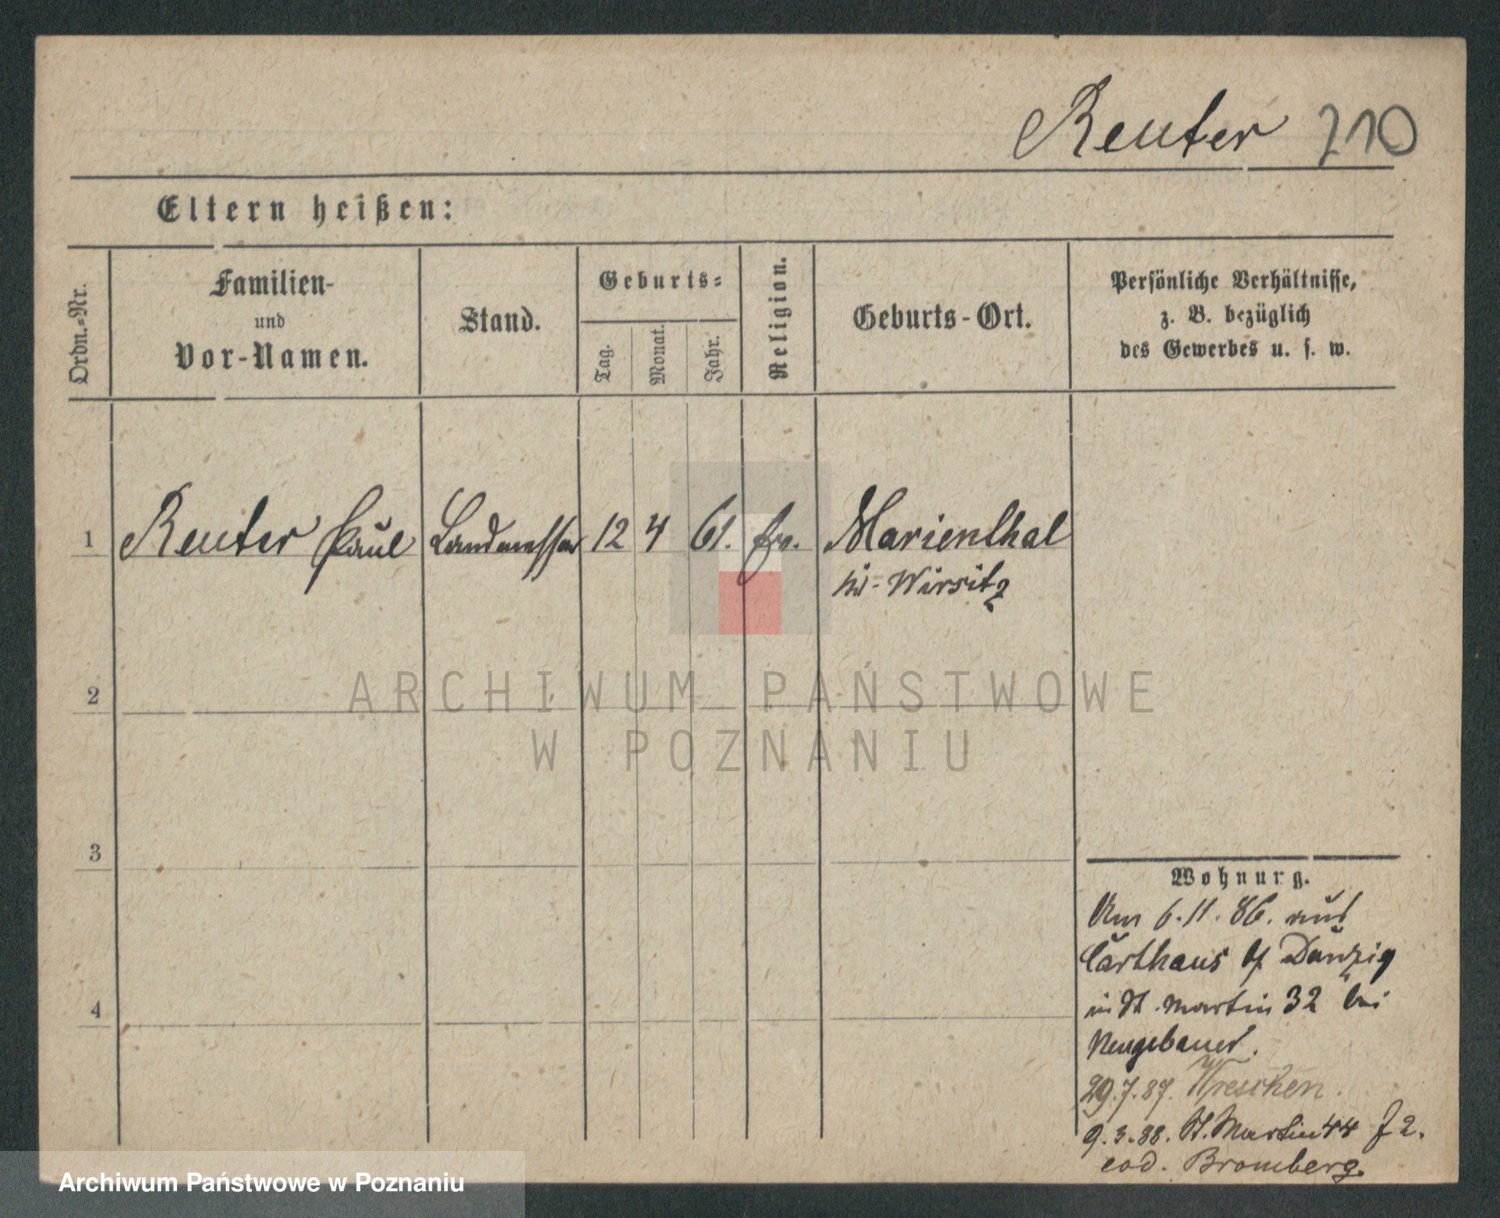 Reuter 210
Eltern heißen:
Ordn.=Nr.
Familien-
und
Vor-Namen.
Stand.
Geburts=
Tag.
Monat.
Jahr.
Religion.
Geburts-Ort.
Persönliche Verhältnisse,
z. B. bezüglich
des Gewerbes u. s. w.
1 Reuter Paul Landmesser 12 4 61. ev. Marienthal
Wirsitz
2
ARCHIWUM PAŃSTWOWE
W POZNANIU
3
4
Wohnurg.
Am 6.11.86. aus
Carthaus b/ Danzig
in St. Martin 32 bei
Neugebauer.
29.7.87. Wreschen.
9.3.88. St. Martin 44 2.
eod. Bromberg.
Archiwum Państwowe w Poznaniu